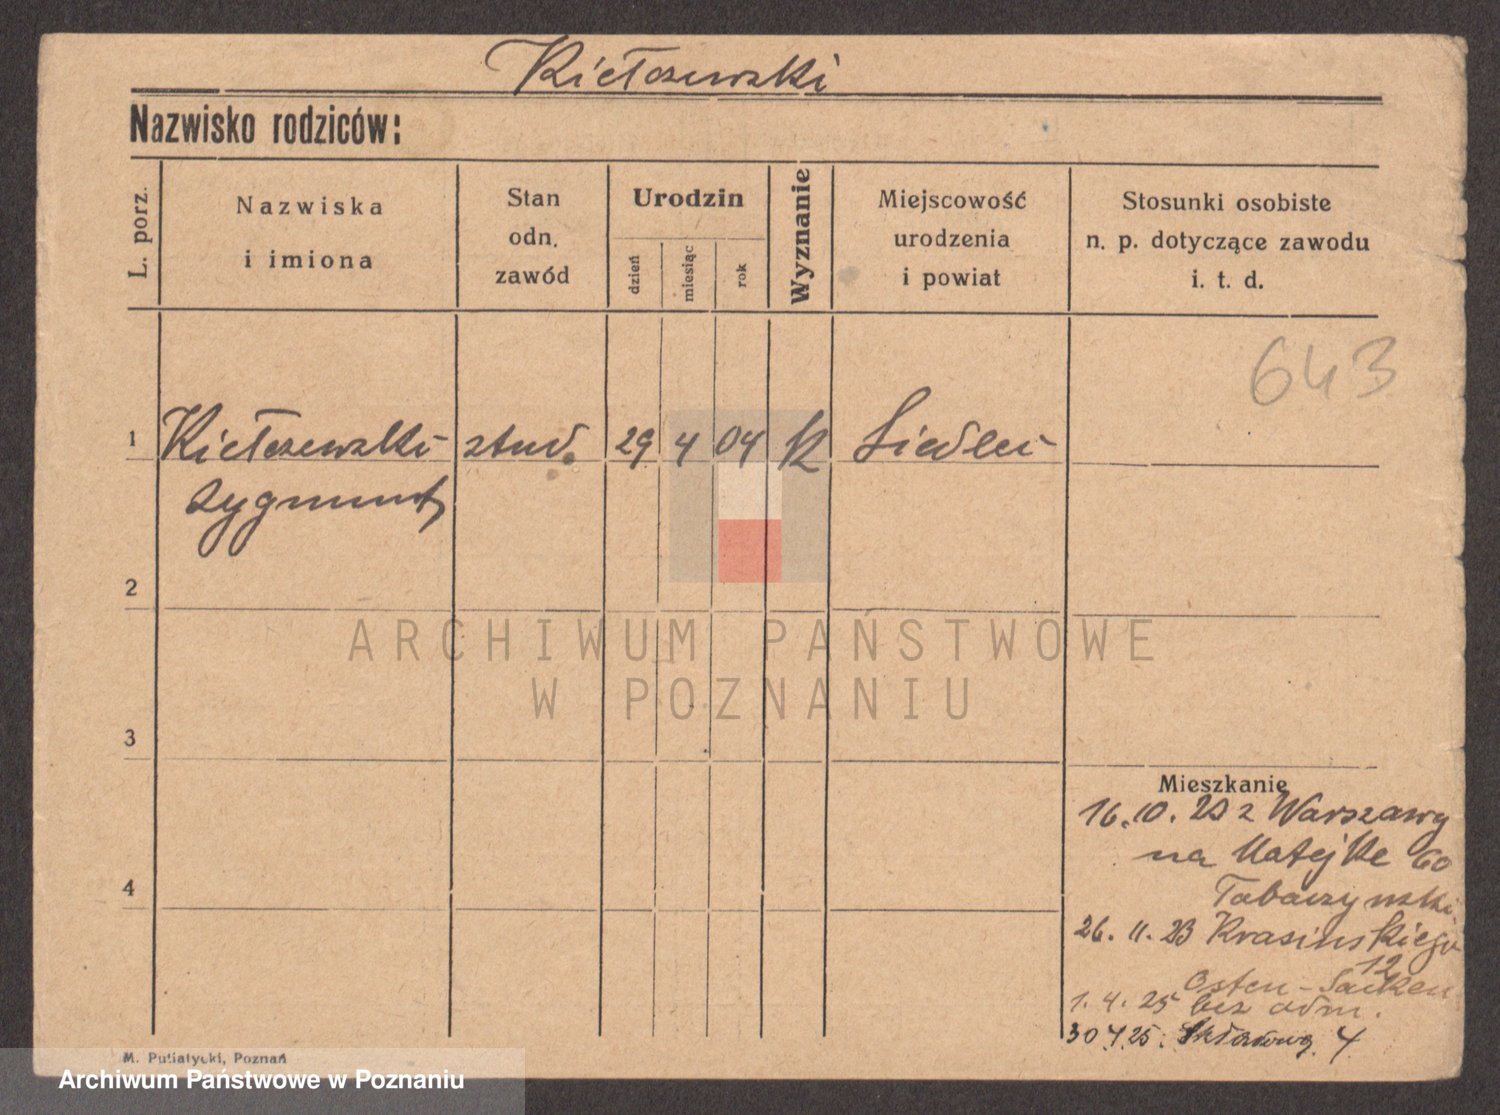 Kiełczewski
Nazwisko rodziców:
L. porz.
Nazwiska
i imiona
Stan
odn.
zawód
Urodzin
dzień
miesiąc
rok
Wyznanie
Miejscowość
urodzenia
i powiat
Stosunki osobiste
n. p. dotyczące zawodu
i. t. d.
643
1 Kiełczewski stud. 29 4 04 k Siedlce
Zygmunt
2
ARCHIWUM PAŃSTWOWE
W POZNANIU
3
Mieszkanie
16.10. 23 z Warszawy
na Matejke 60
4
Tabaczyński.
26. 11. 23 Krasińskiego
12
Osten-Sacken
1. 4. 25 bez odm.
30 4 25. 4
M. Putiatycki, Poznań
Archiwum Państwowe w Poznaniu